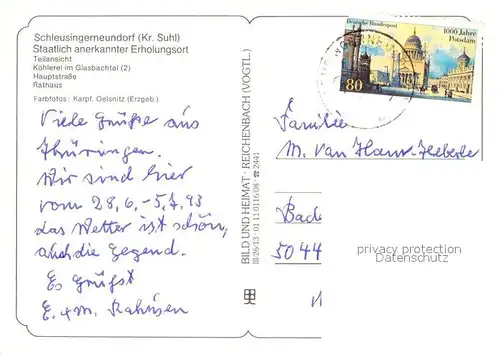 Schleusingerneundorf (Kr. Suhl)
Staatlich anerkannter Erholungsort
Teilansicht
Köhlerei im Glasbachtal (2)
Hauptstraße
Rathaus
Farbfotos: Karpf, Oelsnitz (Erzgeb.)
Viele Grüße aus
Thüringen.
Wir sind hier
vom 28.6.-5.7.93
das Wetter ist schön,
auch die Gegend.
Es Grüßt
E. + M.
BILD UND HEIMAT · REICHENBACH (VOGTL.)
III/26/13 · 01 11 0116/08 · 2441
Deutsche Bundespost
1000 Jahre
Potsdam
80
Familie
M. van
Bad
5044
privacy protection
Datenschutz